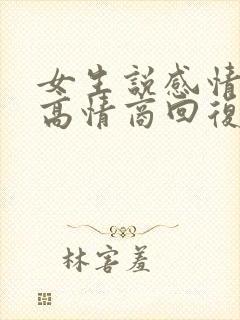 女生説感情
高情商回復
林害羞